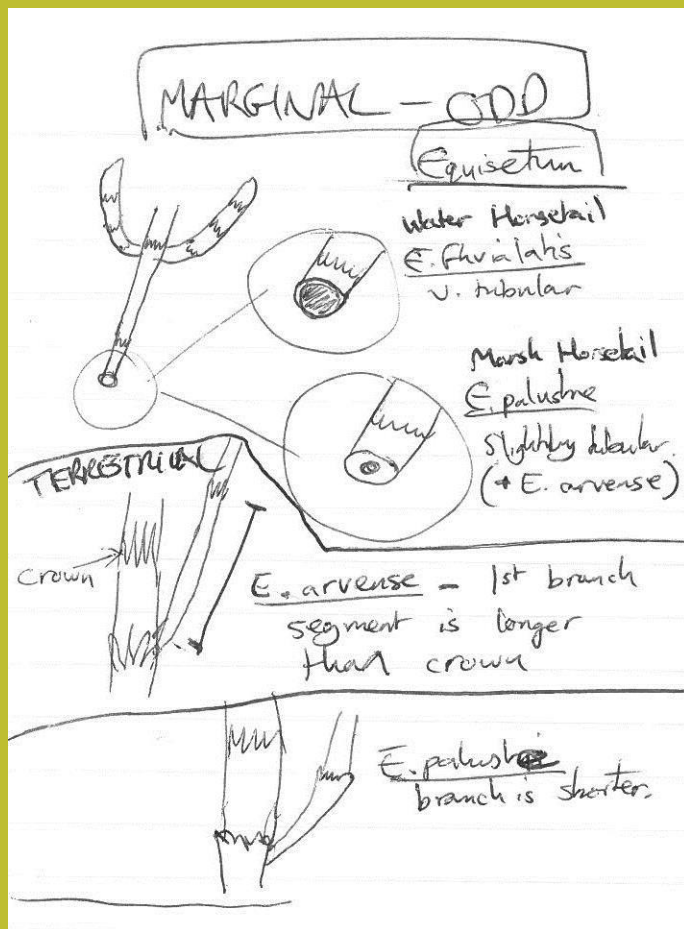 MARGINAL - ODD
Equisetum
Water Horsetail
E. fluvialatis
v. tubular
Marsh Horsetail
E. palustre
slightly tubular
(+ E. arvense)
TERRESTRIAL
crown
E. arvense - 1st branch
segment is longer
than crown
E. palustre
branch is shorter.